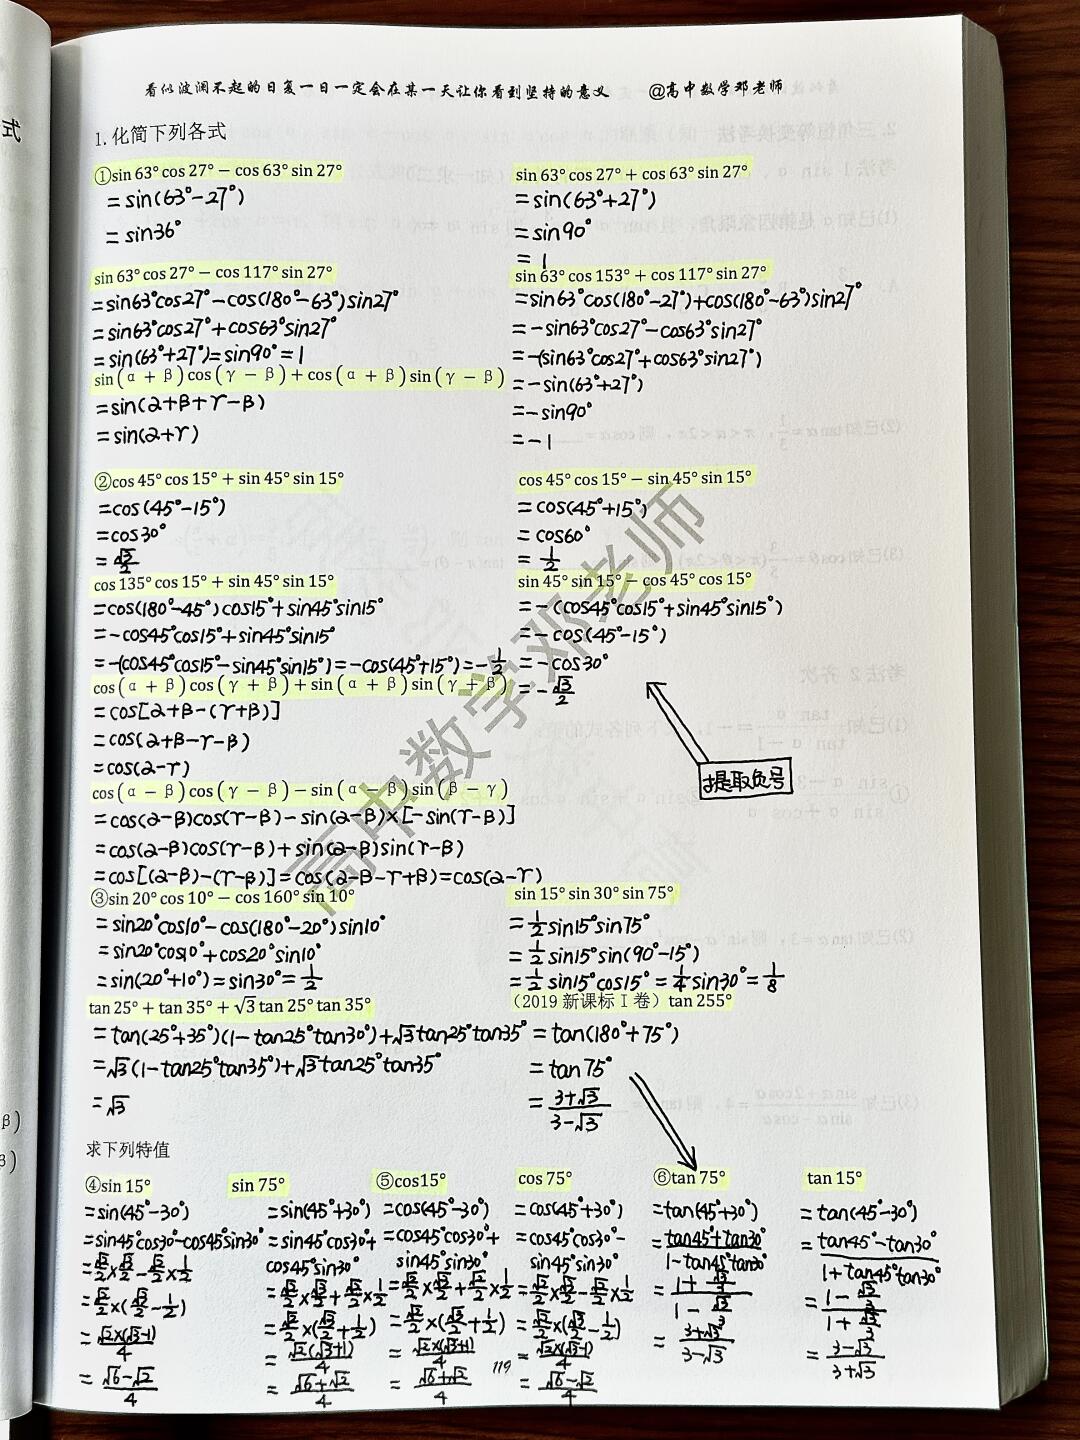 看似波澜不起的日复一日一定会在某一天让你看到坚持的意义 @高中数学邓老师
1.化简下列各式
①sin 63° cos 27° − cos 63° sin 27°
=sin(63°−27°)
=sin36°
sin 63° cos 27° + cos 63° sin 27°
=sin(63°+27°)
=sin90°
=1
sin 63° cos 27° − cos 117° sin 27°
=sin63°cos27°−cos(180°−63°)sin27°
=sin63°cos27°+cos63°sin27°
=sin(63°+27°)=sin90°=1
sin 63° cos 153° + cos 117° sin 27°
=sin63°cos(180°−27°)+cos(180°−63°)sin27°
=−sin63°cos27°−cos63°sin27°
=−(sin63°cos27°+cos63°sin27°)
=−sin(63°+27°)
=−sin90°
=−1
sin(α+β)cos(γ−β)+cos(α+β)sin(γ−β)
=sin(α+β+γ−β)
=sin(α+γ)
②cos 45° cos 15° + sin 45° sin 15°
=cos(45°−15°)
=cos30°
=√3/2
cos 45° cos 15° − sin 45° sin 15°
=cos(45°+15°)
=cos60°
=1/2
cos 135° cos 15° + sin 45° sin 15°
=cos(180°−45°)cos15°+sin45°sin15°
=−cos45°cos15°+sin45°sin15°
=−(cos45°cos15°−sin45°sin15°)=−cos(45°+15°)=−1/2
sin 45° sin 15° − cos 45° cos 15°
=−(cos45°cos15°+sin45°sin15°)
=−cos(45°−15°)
=−cos30°
=−√3/2
提取负号
cos(α+β)cos(γ+β)+sin(α+β)sin(γ+β)
=cos[α+β−(γ+β)]
=cos(α+β−γ−β)
=cos(α−γ)
cos(α−β)cos(γ−β)−sin(α−β)sin(β−γ)
=cos(α−β)cos(γ−β)−sin(α−β)×[−sin(γ−β)]
=cos(α−β)cos(γ−β)+sin(α−β)sin(γ−β)
=cos[(α−β)−(γ−β)]=cos(α−β−γ+β)=cos(α−γ)
③sin 20° cos 10° − cos 160° sin 10°
=sin20°cos10°−cos(180°−20°)sin10°
=sin20°cos10°+cos20°sin10°
=sin(20°+10°)=sin30°=1/2
sin 15° sin 30° sin 75°
=1/2sin15°sin75°
=1/2sin15°sin(90°−15°)
=1/2sin15°cos15°=1/4sin30°=1/8
tan 25° + tan 35° + √3 tan 25° tan 35°
=tan(25°+35°)(1−tan25°tan30°)+√3tan25°tan35°
=√3(1−tan25°tan35°)+√3tan25°tan35°
=√3
(2019 新课标 I 卷) tan 255°
=tan(180°+75°)
=tan75°
=(3+√3)/(3−√3)
求下列特值
④sin 15°
=sin(45°−30°)
=sin45°cos30°−cos45°sin30°
=√2/2×√3/2−√2/2×1/2
=√2/2×(√3/2−1/2)
=√2×(√3−1)/4
=(√6−√2)/4
sin 75°
=sin(45°+30°)
=sin45°cos30°+
cos45°sin30°
=√2/2×√3/2+√2/2×1/2
=√2/2×(√3/2+1/2)
=√2(√3+1)/4
=(√6+√2)/4
⑤cos15°
=cos(45°−30°)
=cos45°cos30°+
sin45°sin30°
=√2/2×√3/2+√2/2×1/2
=√2/2×(√3/2+1/2)
=√2×(√3+1)/4
=(√6+√2)/4
cos 75°
=cos(45°+30°)
=cos45°cos30°−
sin45°sin30°
=√2/2×√3/2−√2/2×1/2
=√2/2×(√3/2−1/2)
=√2×(√3−1)/4
=(√6−√2)/4
⑥tan 75°
=tan(45°+30°)
=(tan45°+tan30°)/(1−tan45°tan30°)
=(1+√3/3)/(1−√3/3)
=(3+√3)/(3−√3)
tan 15°
=tan(45°−30°)
=(tan45°−tan30°)/(1+tan45°tan30°)
=(1−√3/3)/(1+√3/3)
=(3−√3)/(3+√3)
119
高中数学邓老师
式
β)
β)